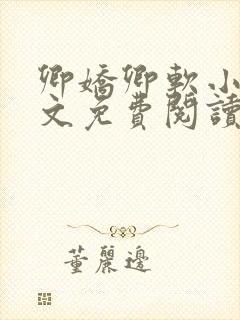 卿嬌卿軟小
文免費閱讀
董麗邊